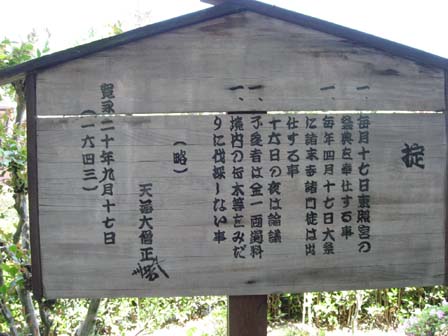 掟
一、毎月十七日東照宮の
祭典を奉仕する事
一、毎年四月十七日大祭
に諸末寺諸門徒は出
仕する事
十六日の夜は論議
一、不参者は金一両過料
一、境内の竹木等をみだ
りに伐採しない事
(略)
天海大僧正
寛永二十年九月十七日
(一六四三)